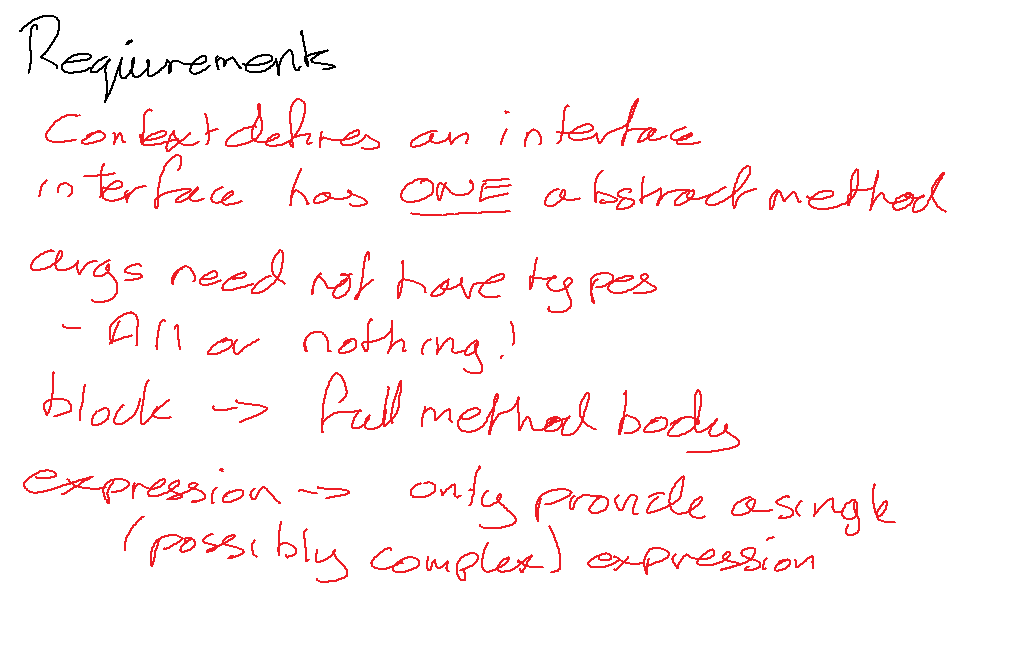 Requirements
Context defines an interface
interface has ONE abstract method
args need not have types
- All or nothing!
block -> full method body
expression -> only provide a single
(possibly complex) expression